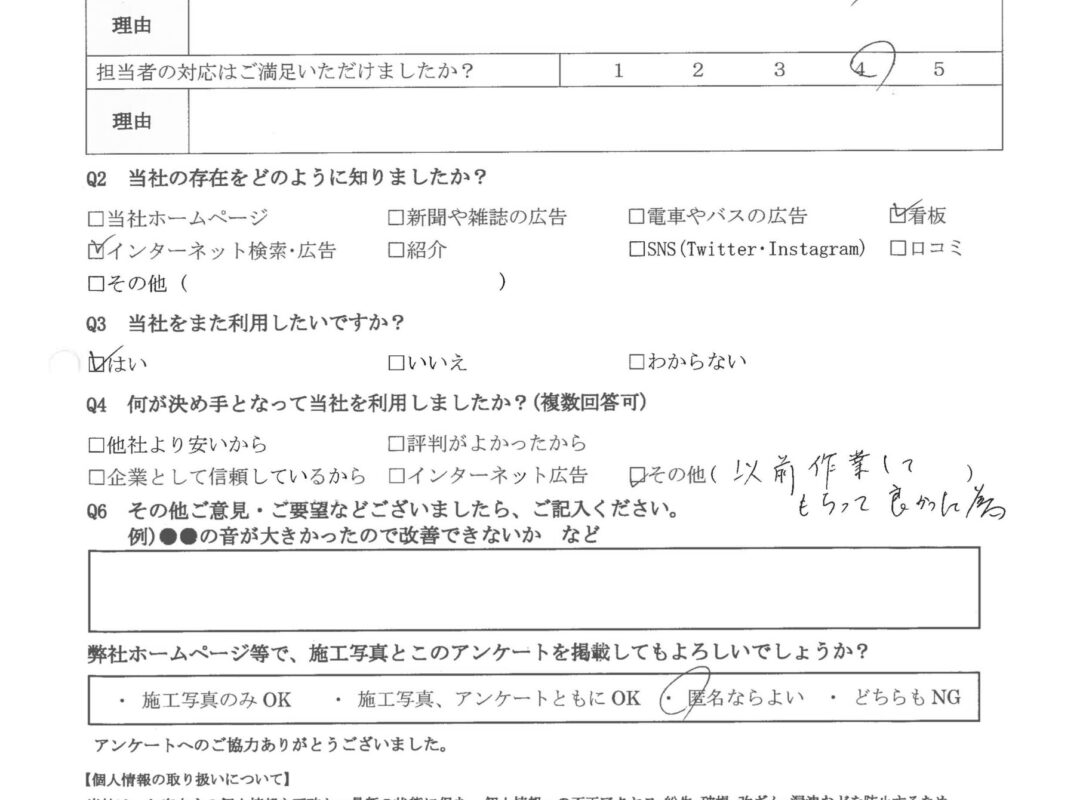 理由
担当者の対応はご満足いただけましたか？ 1 2 3 4 5
理由
Q2 当社の存在をどのように知りましたか？
□当社ホームページ □新聞や雑誌の広告 □電車やバスの広告 ☑看板
☑インターネット検索・広告 □紹介 □SNS(Twitter・Instagram) □口コミ
□その他（ ）
Q3 当社をまた利用したいですか？
☑はい □いいえ □わからない
Q4 何が決め手となって当社を利用しましたか？(複数回答可)
□他社より安いから □評判がよかったから
□企業として信頼しているから □インターネット広告 ☑その他( 以前作業して )
もらって良かった為
Q6 その他ご意見・ご要望などございましたら、ご記入ください。
例)●●の音が大きかったので改善できないか など
弊社ホームページ等で、施工写真とこのアンケートを掲載してもよろしいでしょうか？
・ 施工写真のみ OK ・ 施工写真、アンケートともに OK ・ 匿名ならよい ・ どちらも NG
アンケートへのご協力ありがとうございました。
【個人情報の取り扱いについて】